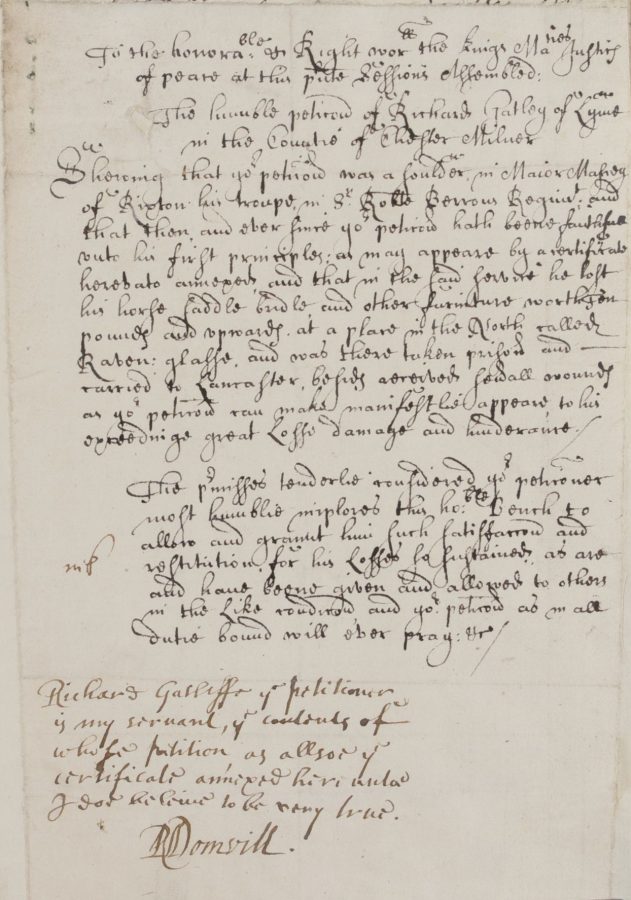 To the honorable & Right worll the kings Maties Justices
of peace at this pnte Sessions Assembled:
The humble peticon of Richard Gatley of Lyme
in the Countie of Chester Milner
Shewing that yor peticonr was a souldier in Maior Massey
of Rixton his troupe, in Sr Robte Regimt and
that then and ever since yor peticonr hath beene faithfull
unto his first principles: as may appeare by a certificate
hereato annexed, and that in the said service he lost
his horse saddle bridle and other furniture worth ten
pounds and upwards, at a place in the North called
Raven: glasse, and was there taken prisonr and
carried to Lancaster, besids received sevall wounds
as yor peticonr can make manifestlie appeare to his
exceedinge great Losse damage and hinderance./
The pmisses tenderlie considered yor peticoner
most humblie implores this hoble: Bench to
allow and graunt him such satisfaccon and
restitution for his Losses so sustained, as are
nil
and have beene given and allowed to others
in the Like condicon and yor peticonr as in all
dutie bound will ever pray: &c/
Richard Gatliffe ye petitioner
is my servant, ye contents of
whose petition as allsoe ye
certificate annexed here untoe
I doe beleive to be very true.
Domvill.